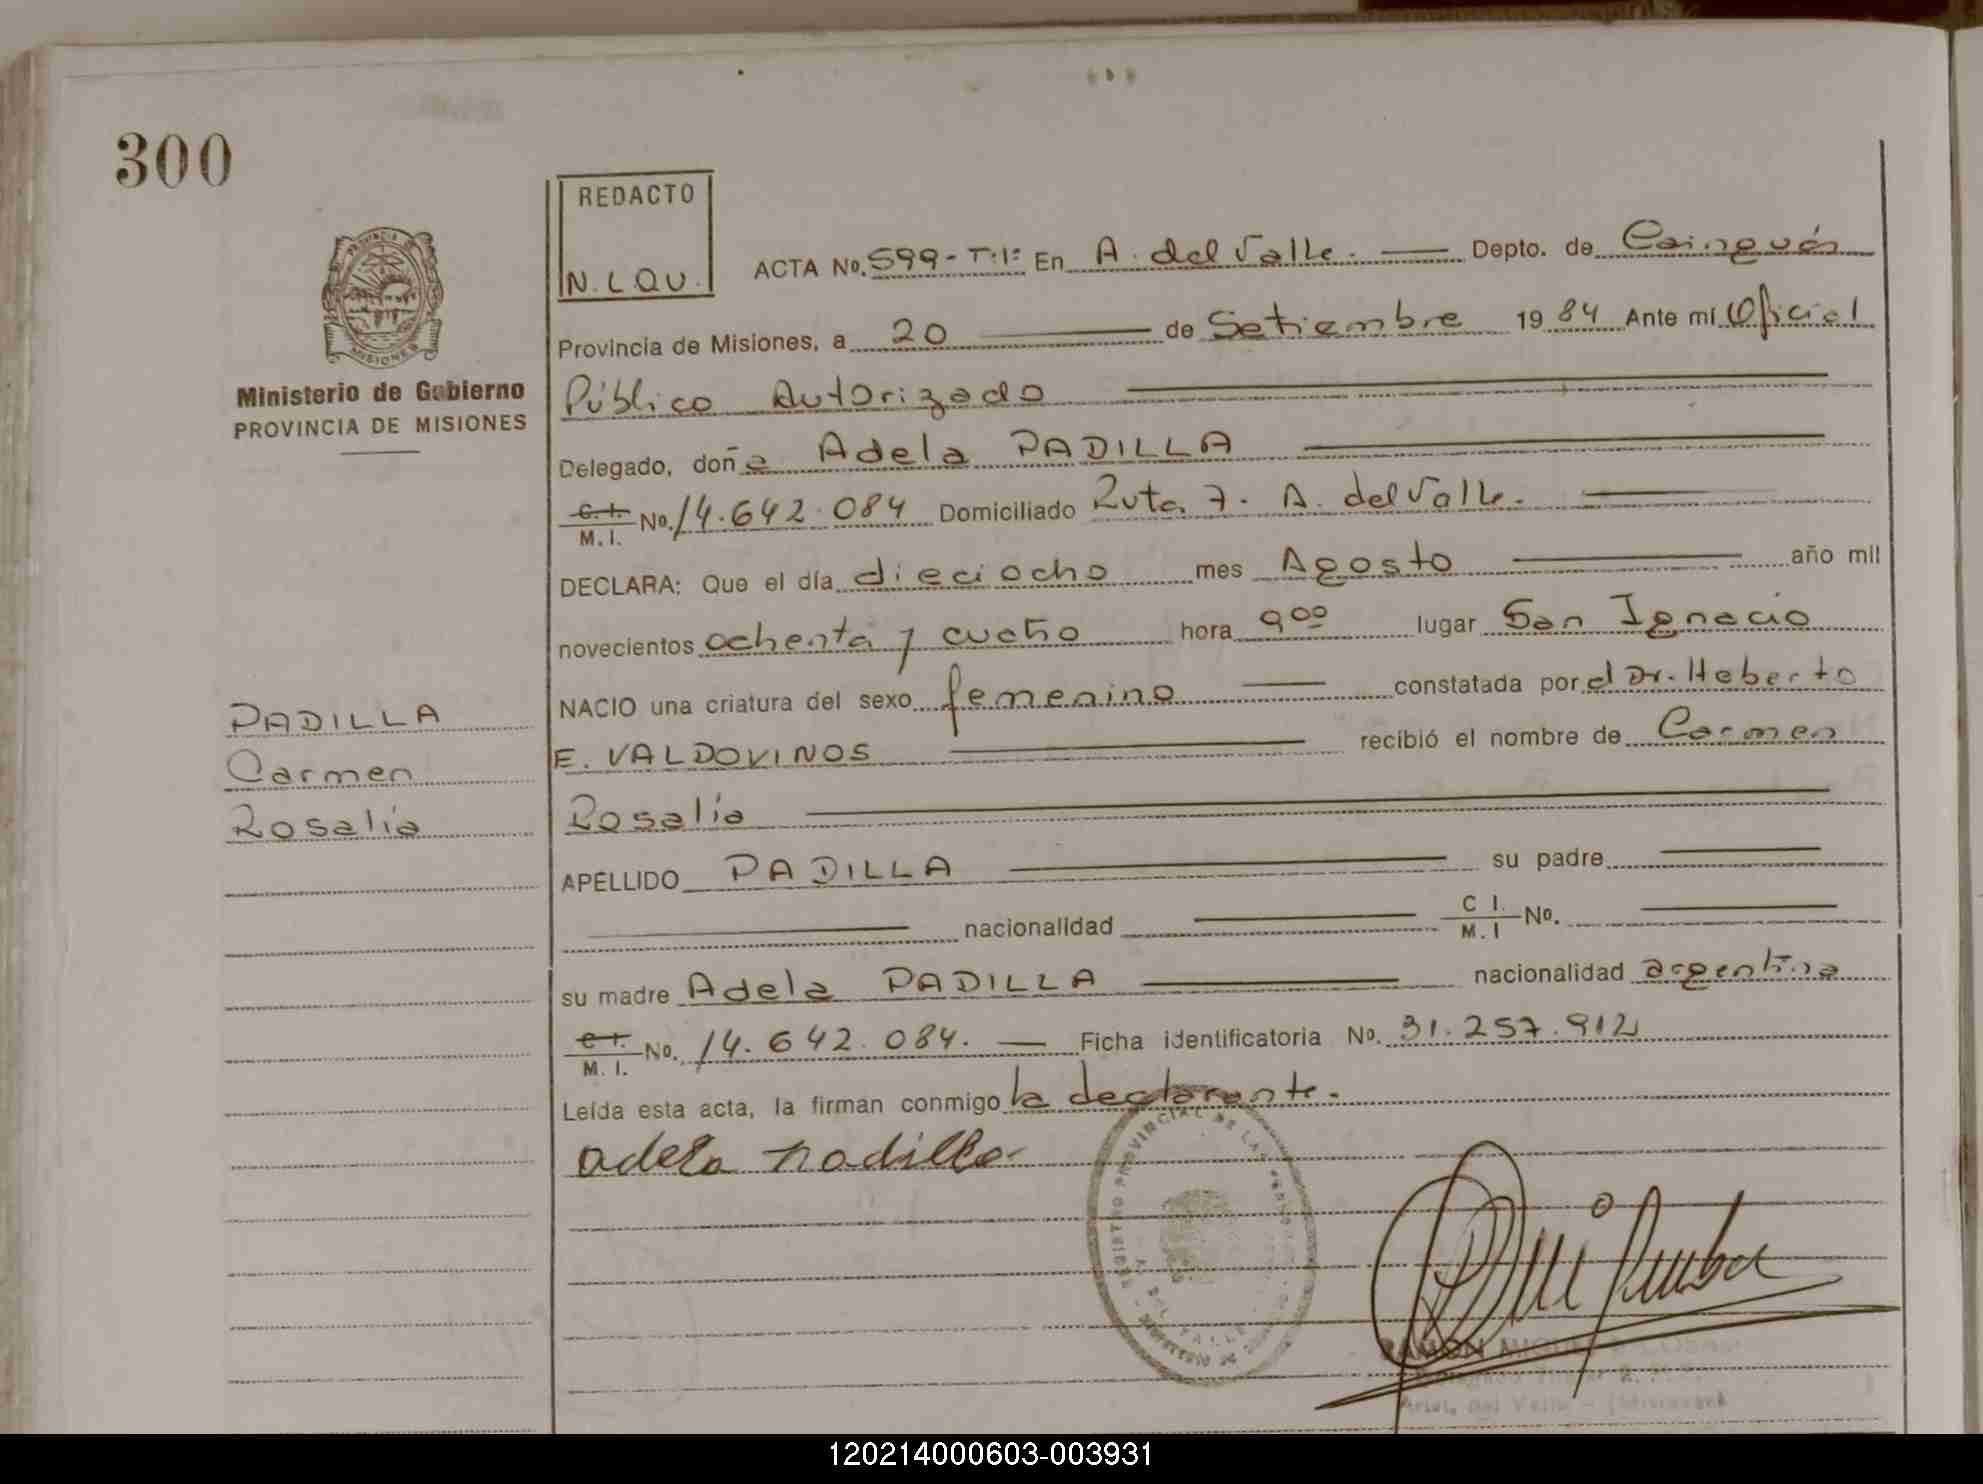 300
REDACTO
N. L. QU.
ACTA No. 599-T.1º En A. del Valle. Depto. de Cainguás
Provincia de Misiones, a 20 de Setiembre 1984 Ante mí Oficial
Público Autorizado
Delegado, doña Adela PADILLA
C. I. / M. I. No. 14.642.084 Domiciliado Ruta 7. A. del Valle.
DECLARA: Que el día dieciocho mes Agosto año mil
novecientos ochenta y cuatro hora 9°° lugar San Ignacio
NACIO una criatura del sexo femenino constatada por el Dr. Heberto
E. VALDOVINOS recibió el nombre de Carmen
Rosalía
APELLIDO PADILLA su padre
nacionalidad C I. / M. I No.
su madre Adela PADILLA nacionalidad argentina
C I. / M. I. No. 14.642.084. Ficha identificatoria No. 31.257.912
Leída esta acta, la firman conmigo la declarante.
adela padilla
PROVINCIA DE MISIONES
Ministerio de Gobierno
PROVINCIA DE MISIONES
PADILLA
Carmen
Rosalía
REGISTRO PROVINCIAL DE LAS PERSONAS
A. DEL VALLE
RAMON
Arist. del Valle - (Misiones)
120214000603-003931